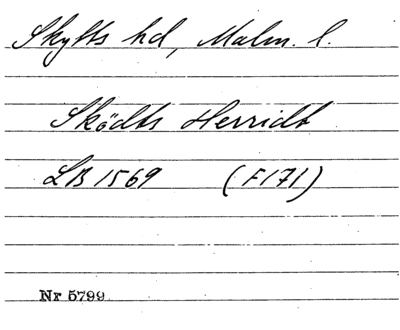 Skytts hd, Malm. l.
Sködts Herridt
LB 1569 (F171)
Nr 5799